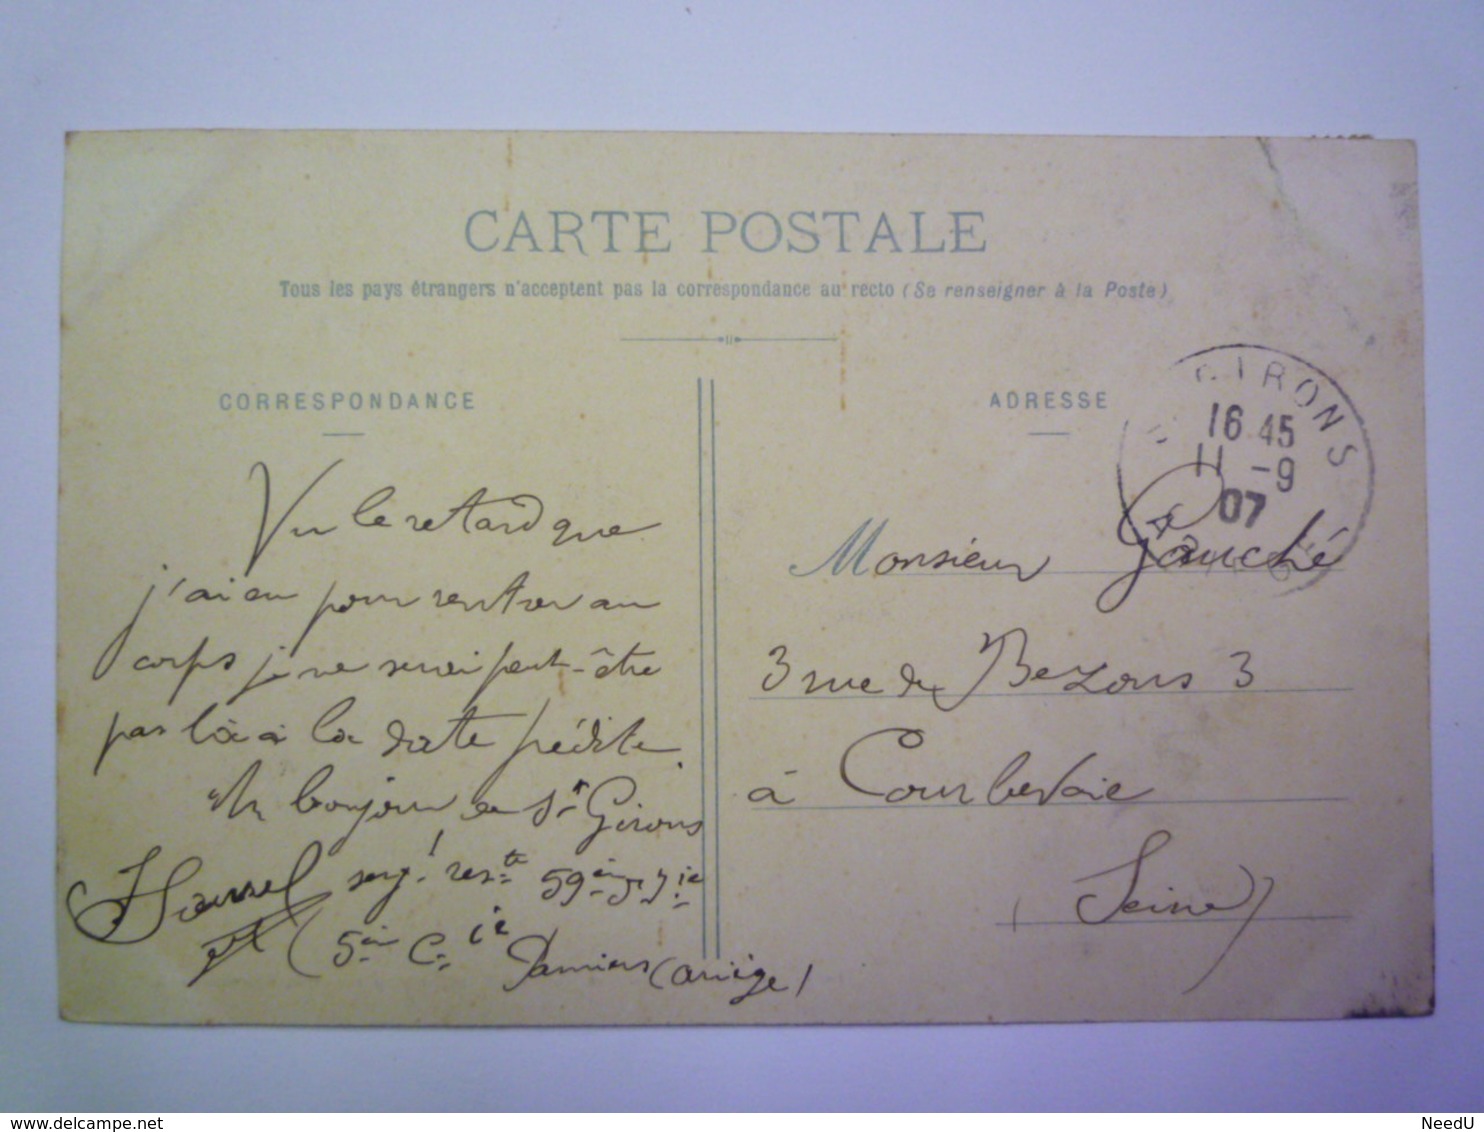 CARTE POSTALE
Tous les pays étrangers n'acceptent pas la correspondance au recto (Se renseigner à la Poste)
CORRESPONDANCE
Vu le retard que
j'ai eu pour rentrer au
corps je ne serai peut-être
pas là à la date prédite.
Un bonjour de St Girons
serg! 59
5è Cie Pamiers (Ariège)
ADRESSE
GIRONS
16 45
11 -9
07
Monsieur Gauché
3 rue de Bezons 3
à Courbevoie
(Seine)
delcampe.net
NeedU